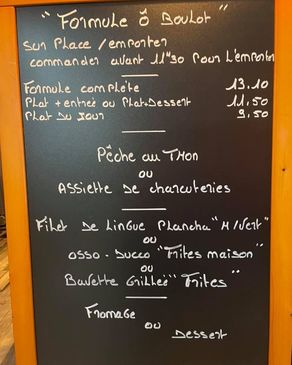 "Formule ô Boulot"
Sur Place / emporter
commander avant 11h30 Pour L'emporter
Formule complète 13.10
Plat + entrée ou Plat + Dessert 11.50
Plat Du Jour 9.50
Pêche au Thon
ou
Assiette De charcuteries
Filet De Lingue Plancha "H/Vert"
ou
Osso-Bucco "Frites maison"
ou
Bavette Grillée "Frites"
Fromage
ou
Dessert